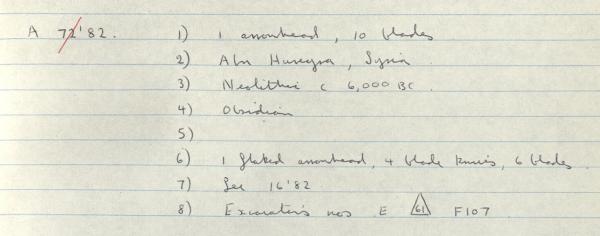 A 72'82. 1) 1 arrowhead, 10 blades
2) Abu Hureyra, Syria
3) Neolithic c 6,000 BC.
4) Obsidian
5)
6) 1 flaked arrowhead, 4 blade knives, 6 blades.
7) See 16'82
8) Excavator's nos E 61 F107